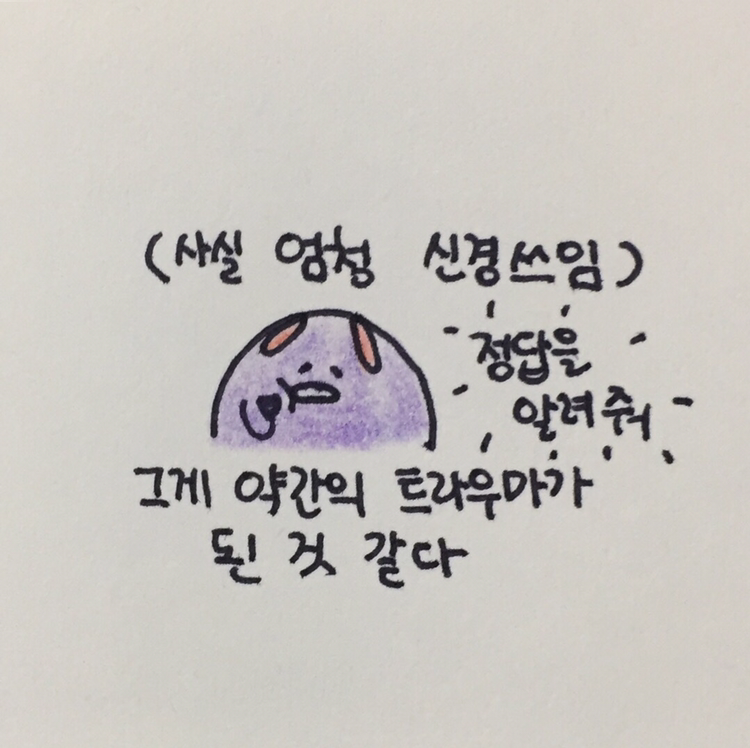 (사실 엄청 신경쓰임)
정답을
알려줘
그게 약간의 트라우마가
된 것 같다